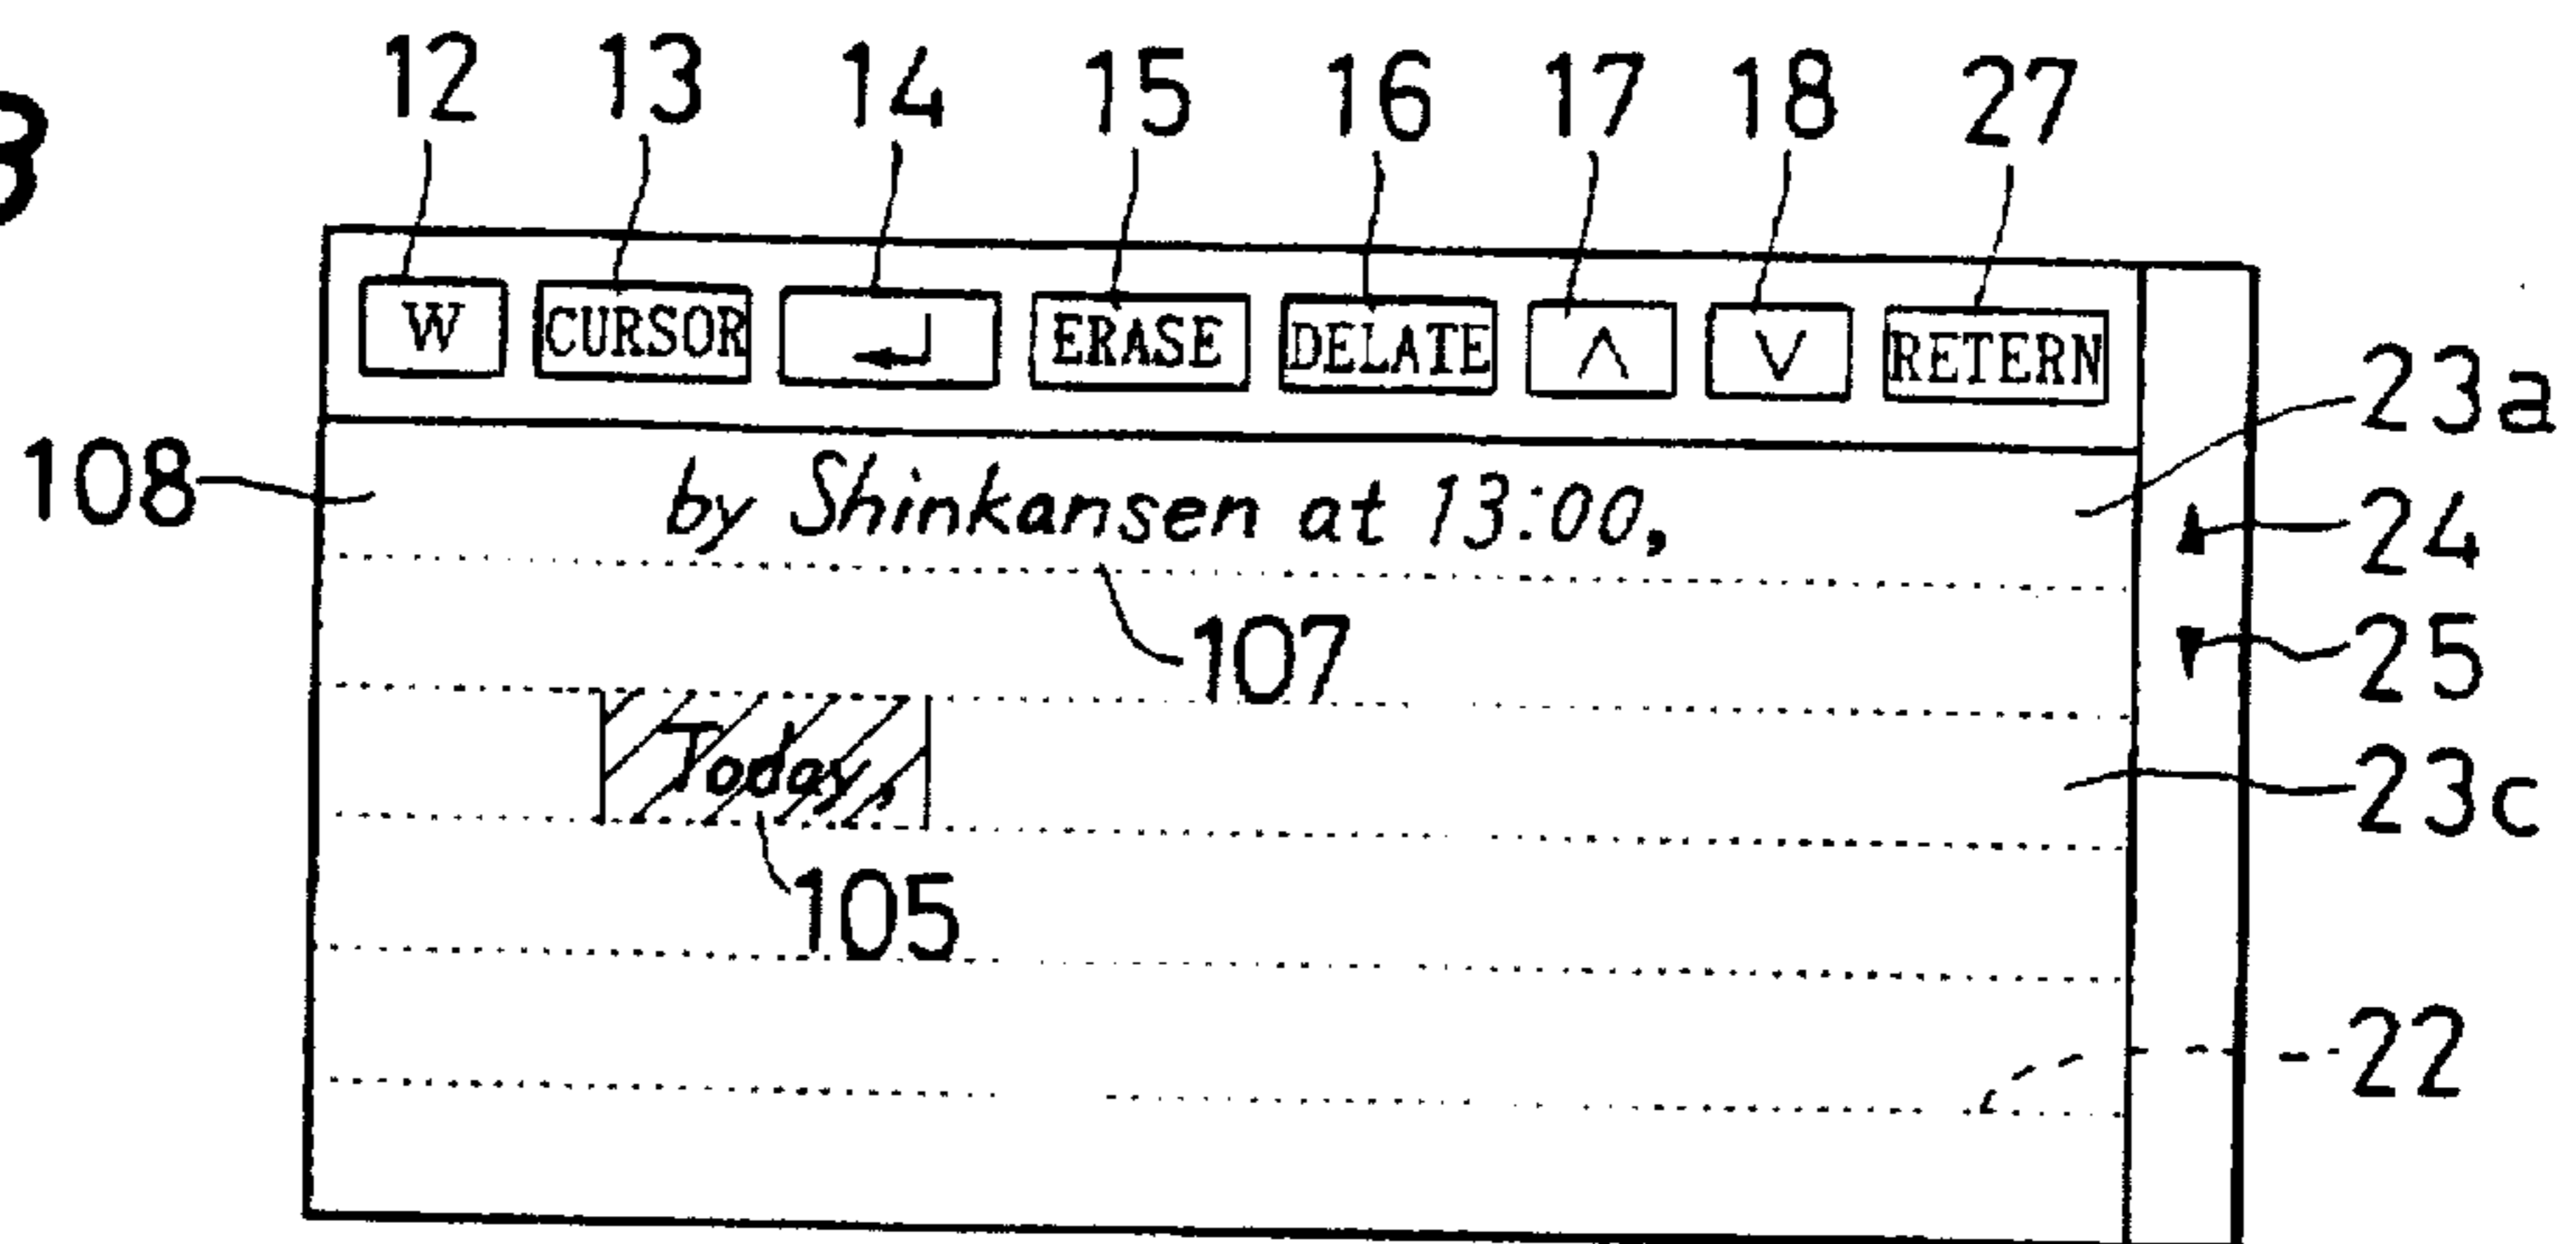 3
12 13 14 15 16 17 18 27
W CURSOR ERASE DELATE ∧ ∨ RETERN
23a
108 by Shinkansen at 13:00, 24
107 25
Today, 23c
105
22